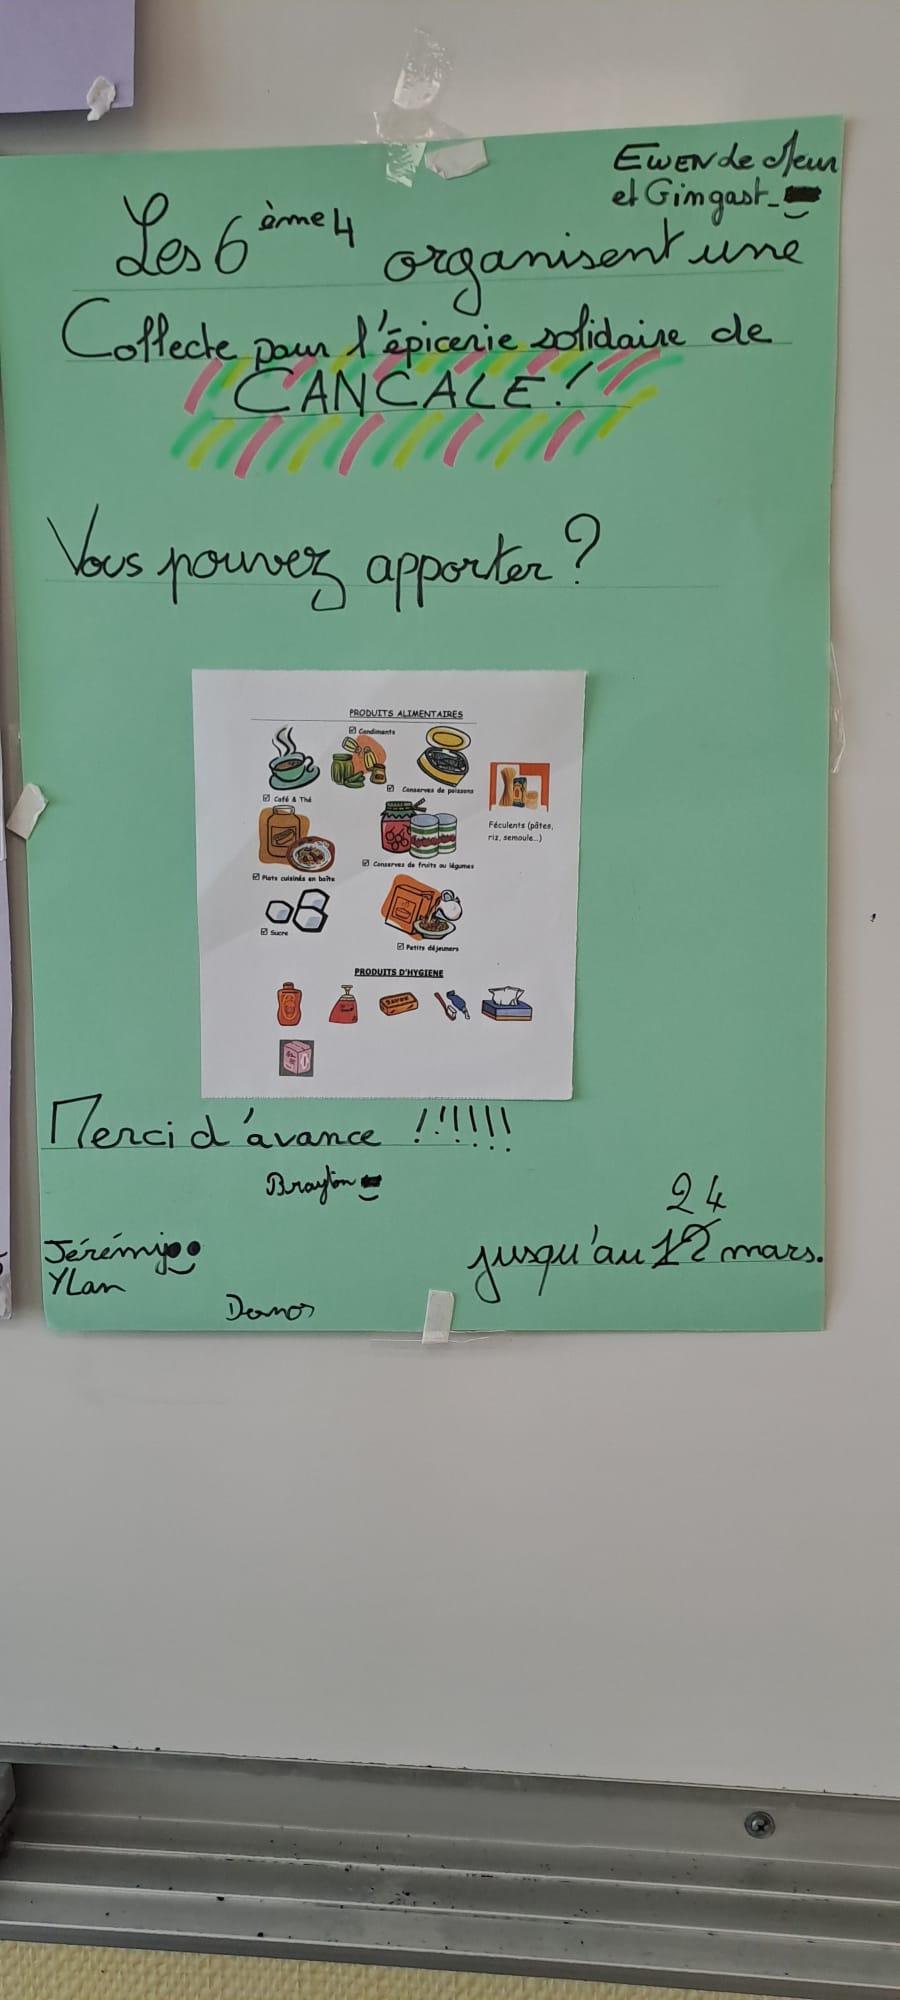 EWEN de
et Gimgast
Les 6ème4 organisent une
Collecte pour l'épicerie solidaire de
CANCALE!
Vous pouvez apporter?
PRODUITS ALIMENTAIRES
☑ Condiments
☑ Conserves de poissons
☑ Café & Thé
Féculents (pâtes,
riz, semoule...)
☑ Conserves de fruits ou légumes
☑ Plats cuisinés en boîte
☑ Sucre
☑ Petits déjeuners
PRODUITS D'HYGIENE
Merci d'avance !!!!!!
Brayton
24
Jérémy
jusqu'au 12 mars.
YLan